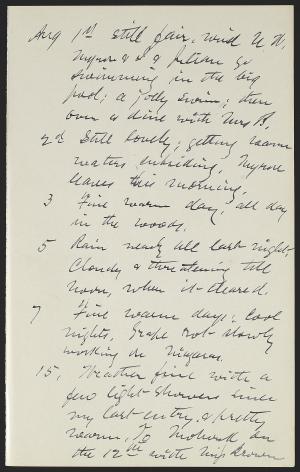 Aug 1st Still fair. wind N.W.
& I & Julian go
swimming in the big
pool; a jolly swim; then
over & dine with Mrs B.
2d Still lovely; getting warm
waters subsiding.
leaves this morning.
3 Fine warm day, all day
in the woods.
5 Rain nearly all last night,
Cloudy & threatening till
noon, when it cleared.
7 Fine warm days; cool
nights. Grape rot slowly
working on Niagaras.
15, Weather fine with a
few light showers since
my last entry. & pretty
warm. To Mohonk on
the 12th with